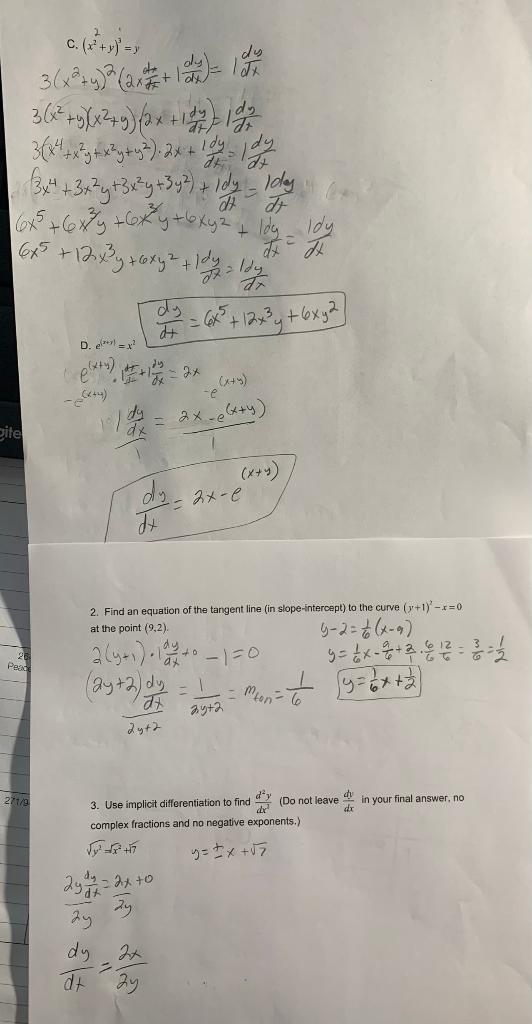 C. (x² + y)³ = y
3(x²+y)²(2x dx/dx + 1 dy/dx) = 1 dy/dx
3(x²+y)(x²+y)(2x + 1 dy/dx) = 1 dy/dx
3(x⁴+x²y+x²y+y²)·2x + 1dy/dx = 1dy/dx
(3x⁴+3x²y+3x²y+3y²) + 1dy/dx = 1dy/dx
6x⁵+6x³y+6x³y+6xy² + 1dy/dx = 1dy/dx
6x⁵ + 12x³y + 6xy² + 1dy/dx = 1dy/dx
dy/dx = 6x⁵+12x³y+6xy²
D. e^(x+y) = x²
e^(x+y) · 1dx/dx + 1dy/dx = 2x
-e^(x+y) -e^(x+y)
1 dy/dx = 2x - e^(x+y)
1 1
dy/dx = 2x-e^(x+y)
2. Find an equation of the tangent line (in slope-intercept) to the curve (y+1)² – x = 0
at the point (9,2).
y-2 = 1/6(x-9)
2(y+1)·1dy/dx +0 -1=0
y = 1/6x - 9/6 + 2/1 · 6/6 12/6 = 3/6 = 1/2
(2y+2)dy/dx = 1/2y+2 = mtan = 1/6
2y+2
y = 1/6x + 1/2
3. Use implicit differentiation to find d²y/dx² (Do not leave dy/dx in your final answer, no
complex fractions and no negative exponents.)
√y² = √x² + √7
y = ± x + √7
2y dy/dx = 2x + 0
2y 2y
dy/dx = 2x/2y
gite
26
Peace
271/9